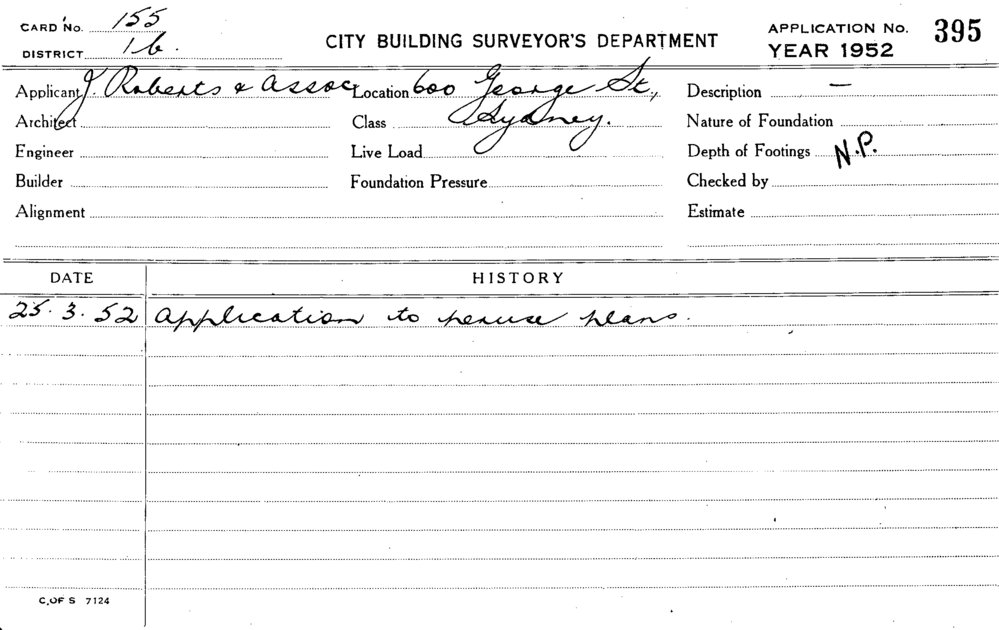 CARD No. 155
DISTRICT 16.
CITY BUILDING SURVEYOR'S DEPARTMENT
APPLICATION No. 395
YEAR 1952
Applicant J. Roberts & Assoc Location 600 George St., Description —
Architect Class Sydney. Nature of Foundation
Engineer Live Load Depth of Footings N.P.
Builder Foundation Pressure Checked by
Alignment Estimate
DATE HISTORY
25.3.52 Application to peruse plans.
C.OF S 7124